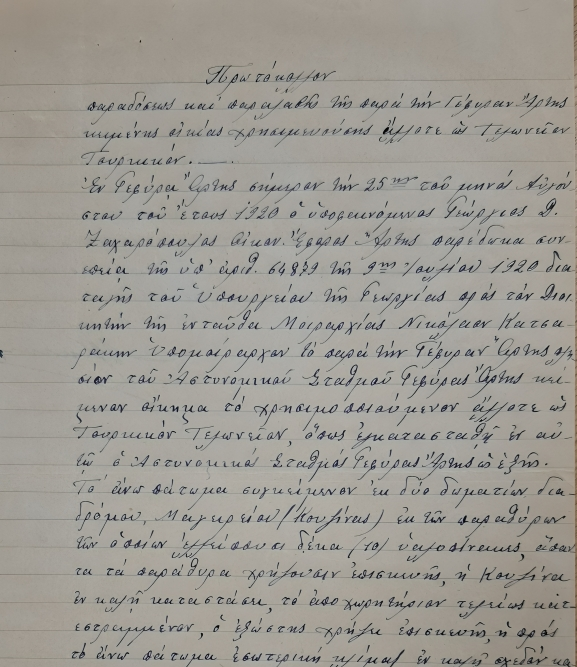 Πρωτόκολλον
παραδόσεως καί παραλαβῆς τῆς παρά τήν Γέφυραν Ἄρτης
κειμένης οἰκίας χρησιμευούσης ἄλλοτε ὡς Τελωνεῖον
Τουρκικόν. —
Ἐν Γεφύρᾳ Ἄρτης σήμερον τήν 25ην τοῦ μηνός Αὐγού
στου τοῦ ἔτους 1920 ὁ ὑποφαινόμενος Γεώργιος Δ.
Ζαχαρόπουλος Οἰκον. Ἔφορος Ἄρτης παρέδωκα συν
επείᾳ τῆς ὑπ' ἀριθ. 64879 τῆς 9ης Ἰουλίου 1920 δια
ταγῆς τοῦ Ὑπουργείου τῆς Γεωργίας πρός τόν Διοι
κητήν τῆς ἐνταῦθα Μοιραρχίας Νικόλαον Κατσα
ράκην Ὑπομοίραρχον τό παρά τήν Γέφυραν Ἄρτης πλη
σίον τοῦ Ἀστυνομικοῦ Σταθμοῦ Γεφύρας Ἄρτης κεί
μενον οἴκημα τό χρησιμοποιούμενον ἄλλοτε ὡς
Τουρκικόν Τελωνεῖον, ὅπως ἐγκατασταθῇ ἐν αὐ
τῷ ὁ Ἀστυνομικός Σταθμός Γεφύρας Ἄρτης ὡς ἑξῆς.
Τό ἄνω πάτωμα συγκείμενον ἐκ δύο δωματίων, δια
δρόμου, Μαγειρείου (Κουζίνας) ἐκ τῶν παραθύρων
τῶν ὁποίων ἐλλείπουσι δέκα (10) ὑαλοπίνακες, ἅπαν
τα τά παράθυρα χρήζουσιν ἐπισκευῆς, ἡ Κουζίνα
ἐν καλῇ καταστάσει, τό ἀποχωρητήριον τελείως κατ
εστραμμένον, ὁ ἐξώστης χρήζει ἐπισκευῆς, ἡ πρός
τό ἄνω πάτωμα ἐσωτερική κλίμαξ ἐν καλῇ σχεδόν κα